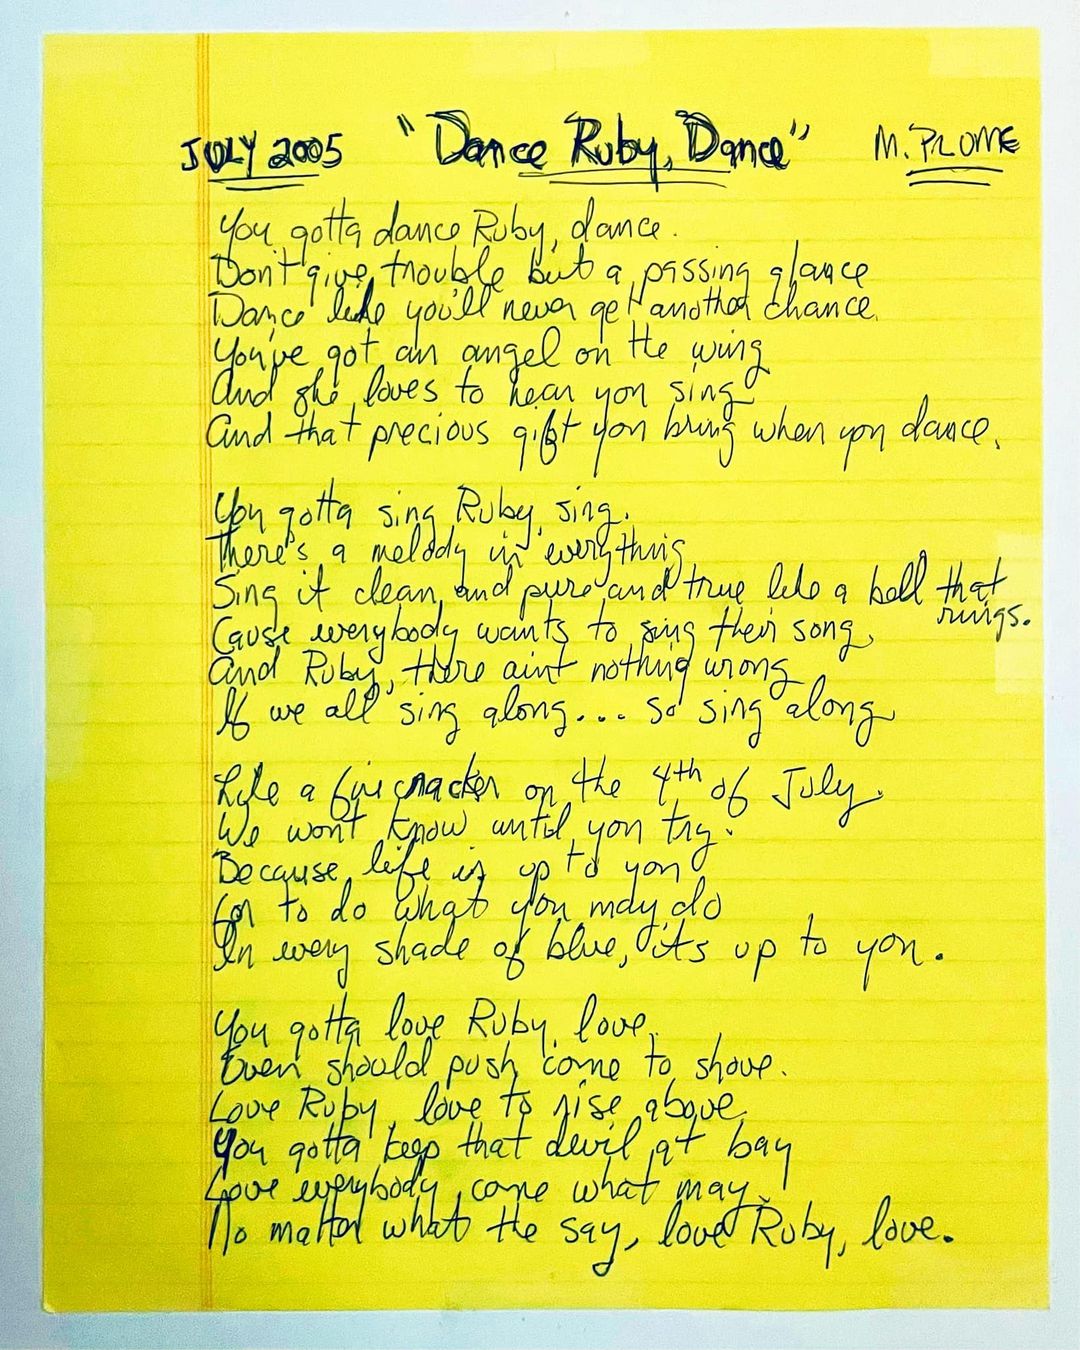 JULY 2005 "Dance Ruby, Dance" M. PLOME
You gotta dance Ruby, dance.
Don't give trouble but a passing glance
Dance like you'll never get another chance.
You've got an angel on the wing
And she loves to hear you sing
And that precious gift you bring when you dance.
You gotta sing Ruby, sing.
There's a melody in everything
Sing it clean and pure and true like a bell that
rings.
Cause everybody wants to sing their song,
And Ruby, there aint nothing wrong
If we all sing along... so sing along
Like a firecracker on the 4th of July.
We won't know until you try.
Because life is up to you
to do what you may do
In every shade of blue, it's up to you.
You gotta love Ruby, love,
Even should push come to shove.
Love Ruby, love to rise above,
You gotta keep that devil at bay
Love everybody, come what may,
No matter what the say, love Ruby, love.